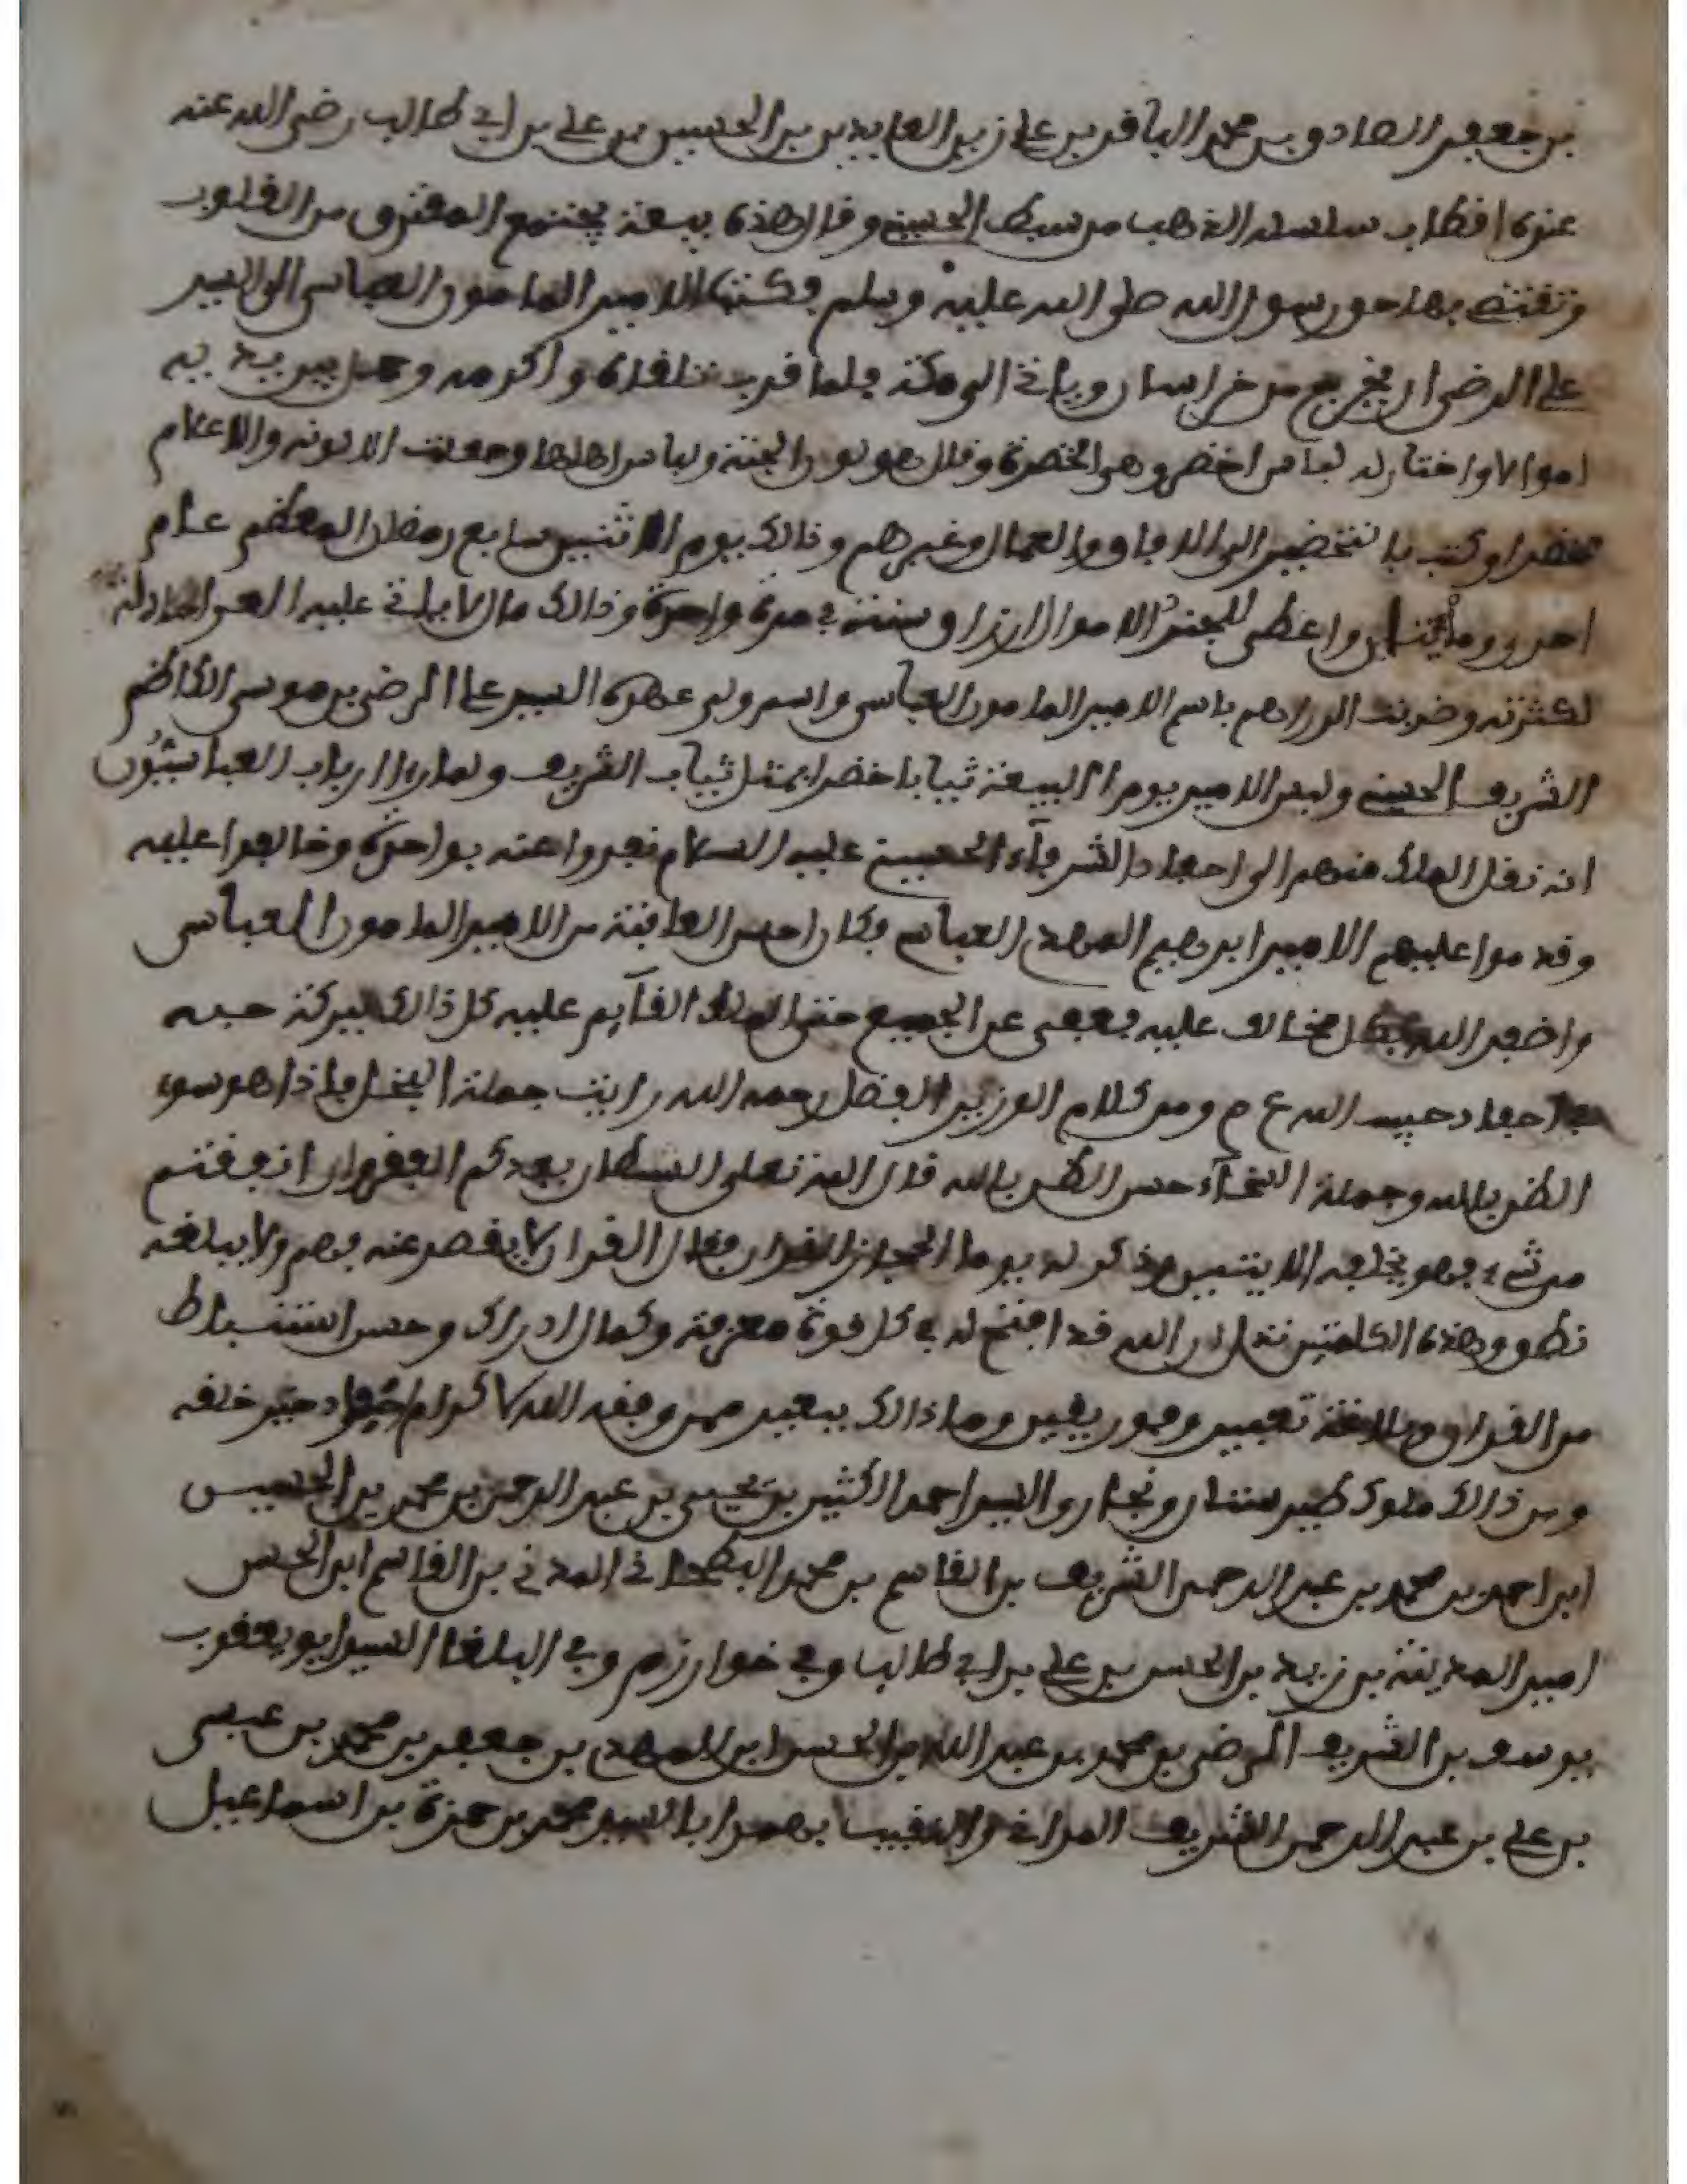 بن جعفر الصادق بن محمد الباقر بن علي زين العابدين بن الحسين بن علي بن ابي طالب رضي الله عنه
عنده اقطاب سلسلة الذهب من سبط الحسين وقال هذه بيعة يجتمع المفترق من القلوب
وتقتضى بها حق رسول الله صلى الله عليه وسلم فكتب الامير المامون العباسي الى السيد
علي الرضى ان يخرج من خراسان وياتي الى مكة فلما قرب تلقاه واكرمه وحمل بين يديه
اموالا واختار له لباس اخضر وهو الخضرة وقال هو نور الجنة ولباس اهلها وجعلت الالوية والاعلام
خضرا وكتب بالتخضير الى الافاق والعمال وغيرهم وذالك يوم الاثنين سابع رمضان المعظم عام
احدى ومائتين واعطى للجند الاموال ارزاق سنة في مرة واحدة وذالك مال لا ياتي عليه العد
لكثرته وضربت الدراهم باسم الامير المامون العباسي واسم ولي عهده السيد علي الرضى بن موسى الكاظم
الشريف الحسيني ولبس الامير يوم البيعة ثيابا خضرا بمثل ثياب الشريف ولما راى ارباب العباسيون
انه نقل الملك منهم الى احفاد الشرفاء الحسين عليه السلام نفروا عنه بواحدة وخالفوا عليه
وقدموا عليهم الامير ابرهيم المهدي العباسي فكان احسن العاقبة من الامير المامون العباسي
واضفر الله بكل مخالف عليه فعفى عن الجميع حتى الملك القآيم عليه كل ذالك ببركة حبه
احفاد حبيب الله ع م ومن كلام الوزير الفضل رحمه الله رايت جملة البخل فاذا هو سوء
الظن بالله وجملة السخآء حسن الظن بالله قال الله تعلى الشيطان يعدكم الفقر وان انفقتم
من شيء فهو يخلفه الايتين وذكر له يوما القران فقال القران لا يقصر عنه فهم ولا يبلغه
نطق وهذه الكلمتين تدل ان الله قد افتح له في كل قوة معرفة وكمال ادراك وحسن استنباط
من القران وبلاغة تعبير ونور يقين وما ذالك ببعيد ممن وفقه الله لاكرام احفاد خير خلقه
ومن ذالك ملوك طبرستان ونجار والسيد احمد الكثير بن يحيى بن عبد الرحمن بن محمد بن الحسين
ابن احمد بن محمد بن عبد الرحمن الشريف بن القاسم بن محمد البطحاني المدني بن القاسم ابن الحسن
امير المدينة بن زيد بن الحسن بن علي بن ابي طالب وفي خوارزم وفي البلغا السيد ابو يعقوب
يوسف بن الشريف الرضي بن محمد بن عبد الله بن الحسن ابن المهدي بن جعفر بن محمد بن عيسى
بن علي بن عبد الرحمن الشريف والنقيب بهمرابا السيد محمد بن حمزة بن اسماعيل